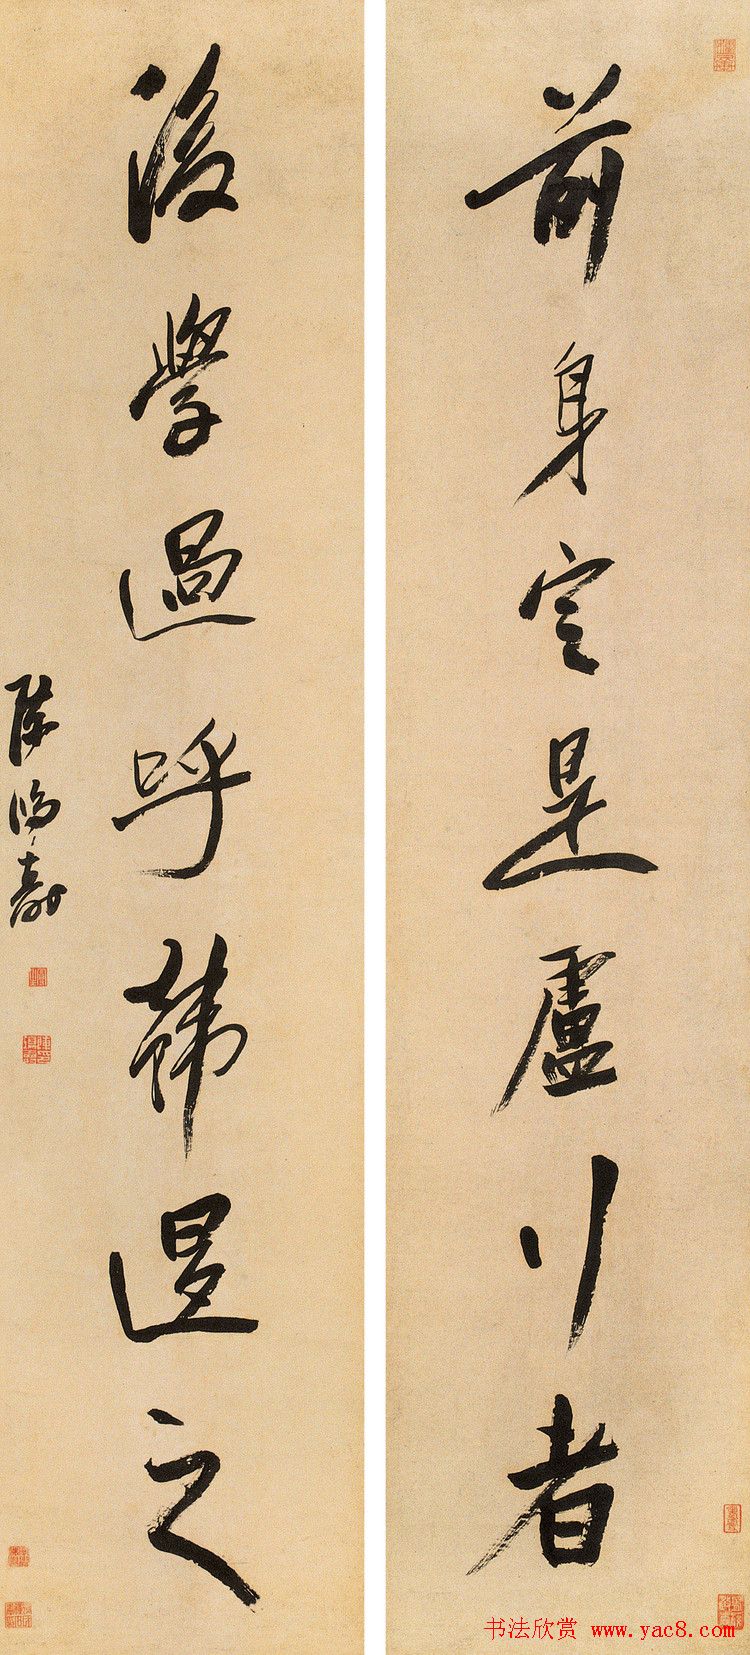 前身定是盧行者
後學過呼韓退之
陳鴻壽
书法欣赏 www.yac8.com